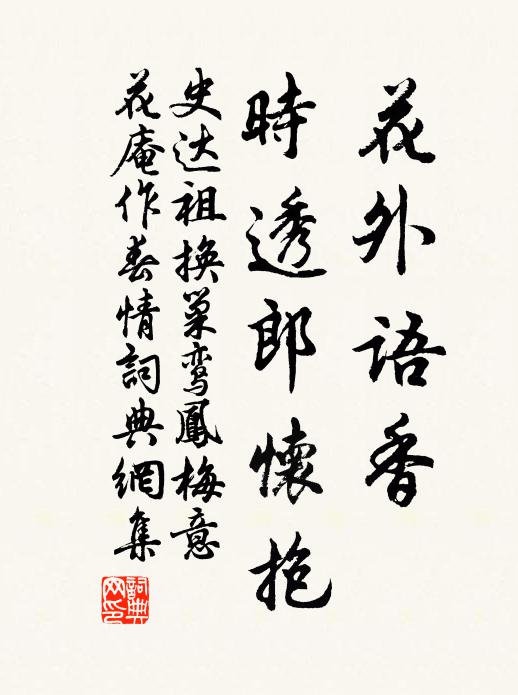 花外語香
時透郎懷抱
史达祖換巢鸾鳳梅意
花庵作春情詞典網集
詞典网印